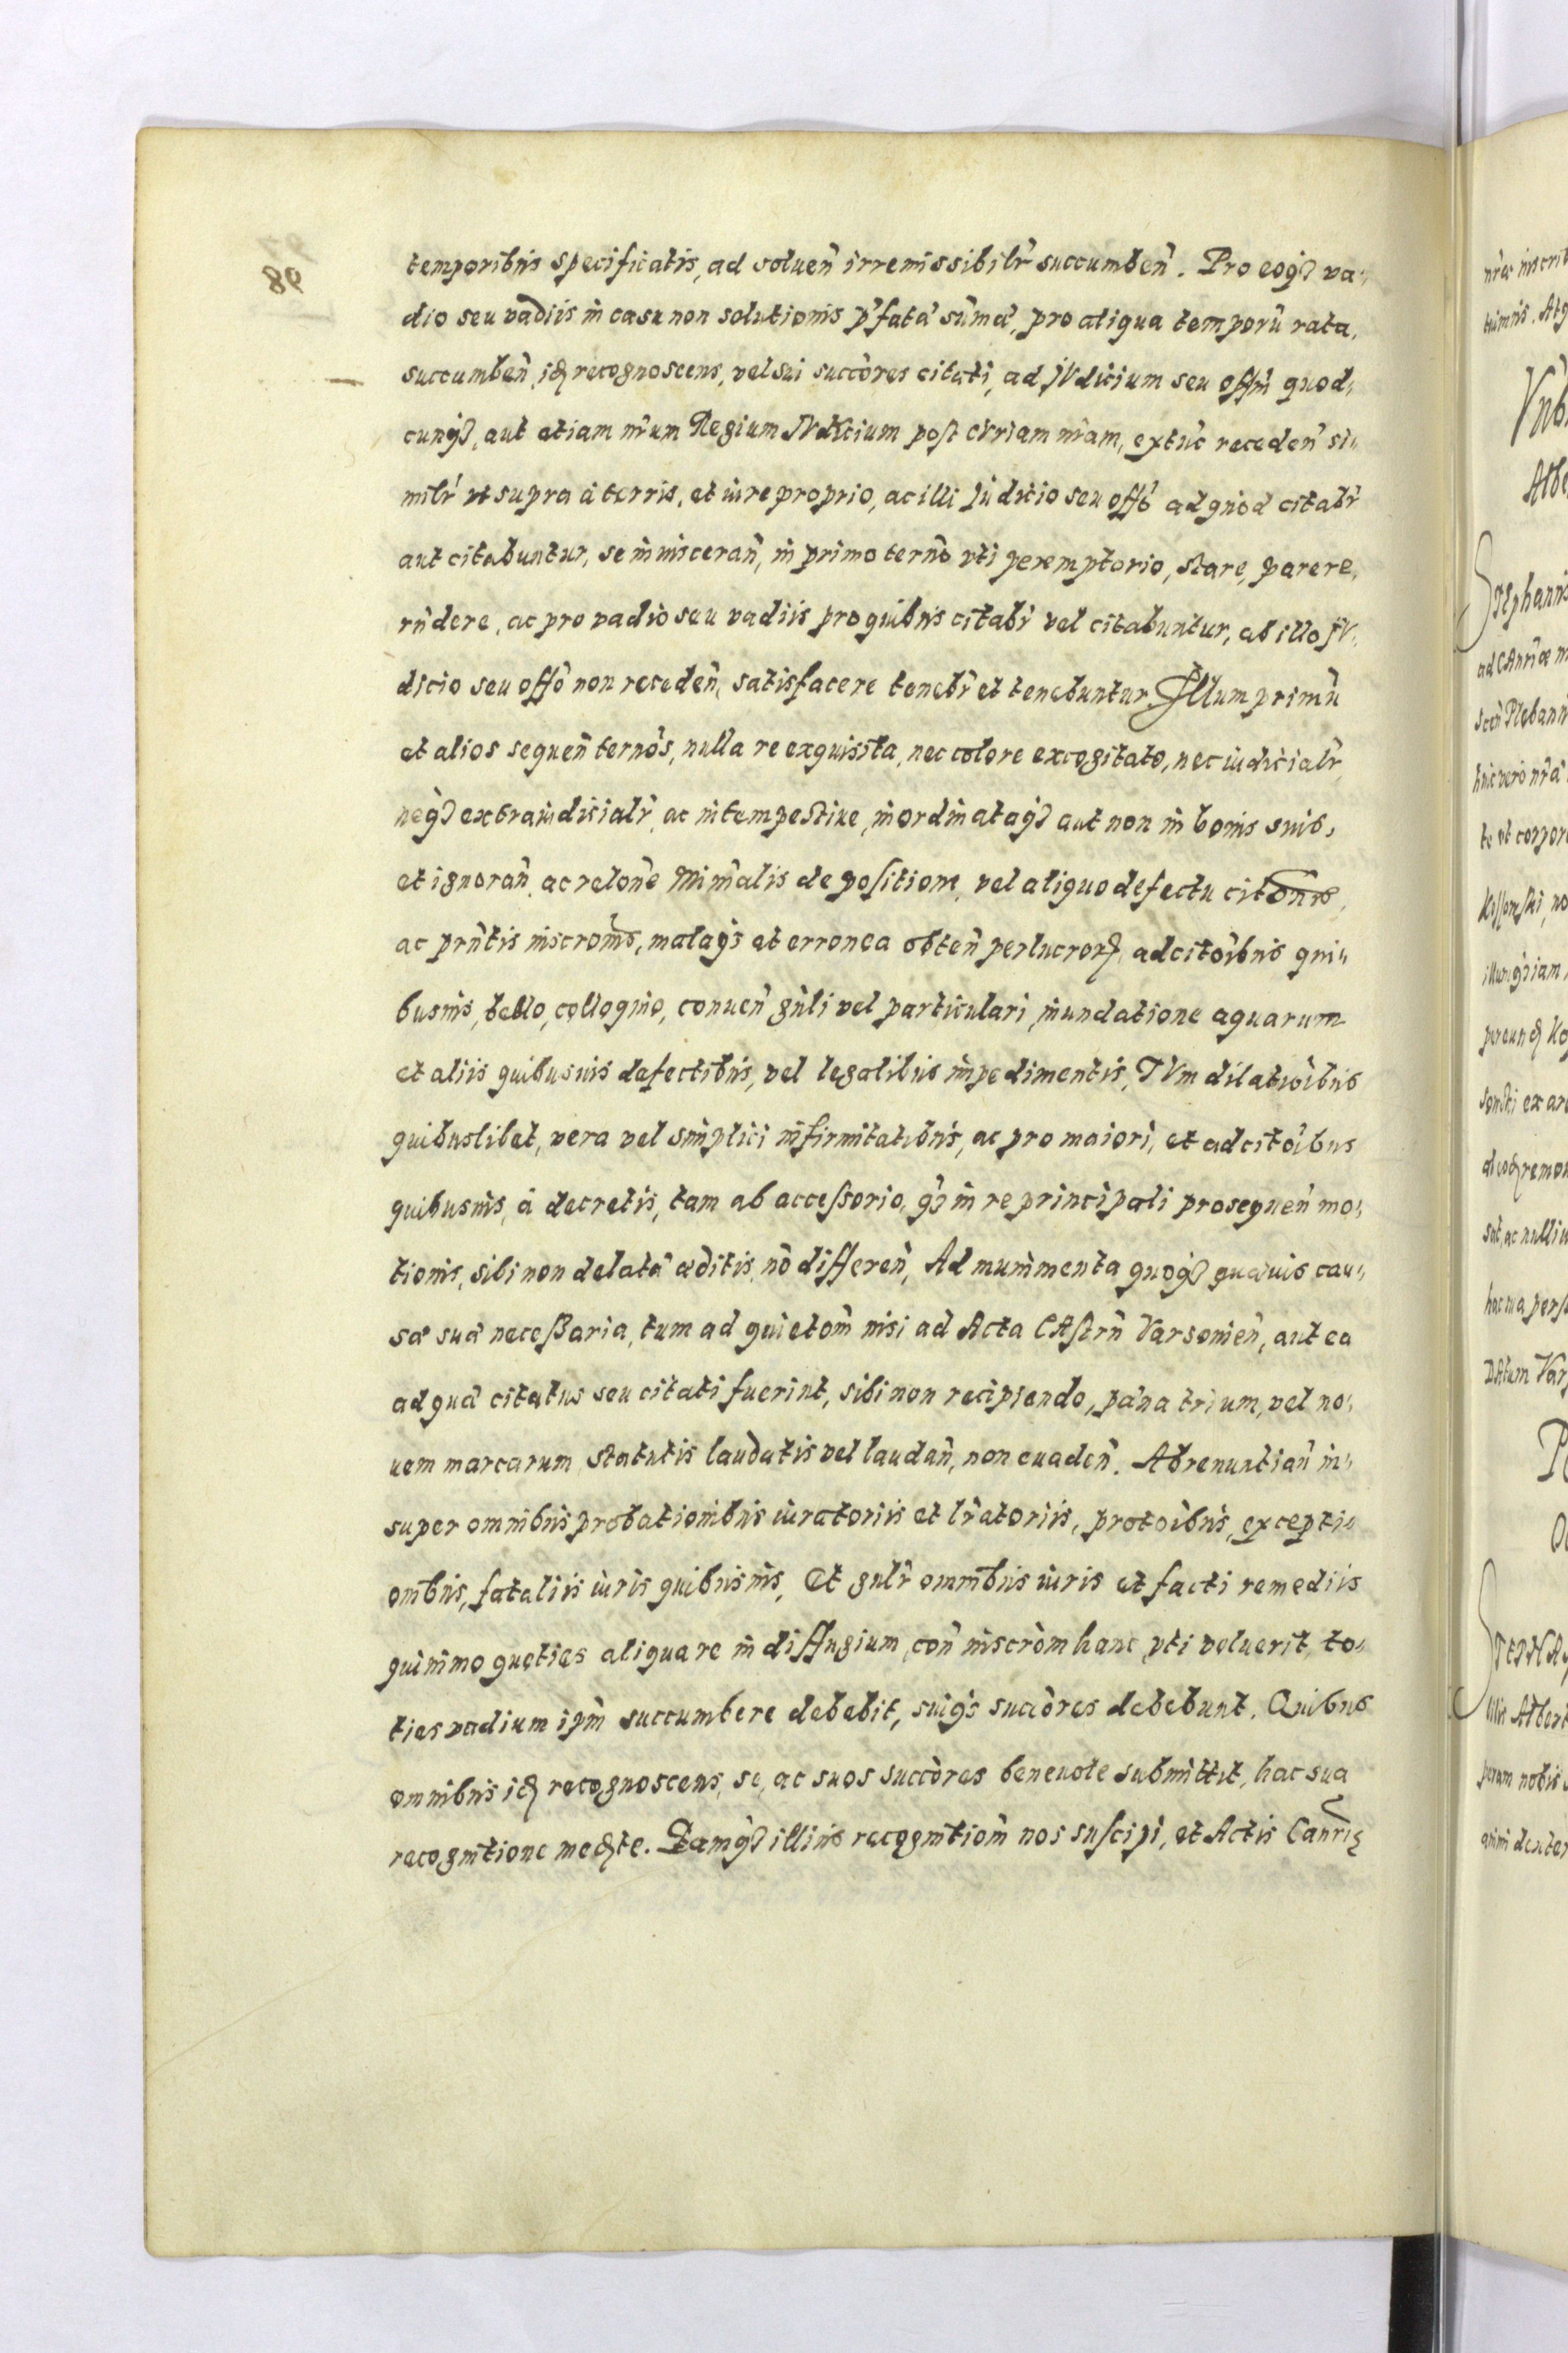 98
temporibus specificatis, ad soluen̄ irremissibilr̄ succumben̄. Pro eoqȝ va-
dio seu vadiis in casu non solutionis p̄fatæ sum̄æ, pro aliqua temporū rata,
succumben̄, idȩ recognoscens, vel sui succōres citati, ad JVdicium seu offm̄ quod-
cunqȝ, aut etiam nr̄um Regium JVdicium post cVriam nr̄am, extūc receden̄ si-
milr̄ vt supra à terris, et iure proprio, ac illi Judicio seu offō ad quod citabr̄
aut citabuntur, se inuisceran̄, in primo tern̄o vti peremptorio, stare, parere,
rn̄dere, ac pro vadio seu vadiis pro quibus citabr̄ vel citabuntur, ab illo JV-
dicio seu offō non receden̄, satisfacere tenebr̄ et tenebuntur. Illum primū
et alios sequen̄ tern̄os, nulla re exquisita, nec colore excogitato, nec iudicialr̄,
neqȝ extraiudicialr̄, ac intempestiue, inordinataqȝ aut non in bonis suis,
et ignoran̄, ac relōne Minr̄alis depositione, vel aliquo defectu citōnis,
ac prn̄tis inscrōnis, malaqȝ et erronea obten̄ per lucrorȩ, adcitōibus qui-
busuis, bello, colloquio, conuen̄ gn̄li vel particulari, inundatione aquarum
et aliis quibusuis defectibus, vel legalibus impedimentis, TVm dilatiōibus
quibuslibet, vera vel simplici infirmitatibus, ac pro maiori, et adcitōibus
quibusuis, à decretis, tam ab accessorio, qȝ in re principali prosequen̄ mo-
tionis, sibi non delatæ æditis, nō differen̄, Ad munimenta quoqȝ quæuis cau-
sæ suæ necessaria, tum ad quietom̄ nisi ad Acta CAstrn̄ Varsouien̄, aut ea
ad quæ citatus seu citati fuerint, sibi non recipiendo, pæna trium, vel no-
uem marcarum, statutis laudatis vel laudan̄, non euaden̄. Abrenuntian̄ in-
super omnibus probationibus iuratoriis et lr̄atoriis, protōibus, excepti-
onibus, fataliis iuris quibusuis, Et gnlr̄ omnibus iuris et facti remediis
quinimo quoties aliqua re in diffugium, con̄ inscrōm hanc, vti voluerit, to-
ties vadium ipm̄ succumbere debebit, suiqȝ succōres debebunt. Quibus
omnibus idȩ recognoscens, se, ac suos succōres beneuole submittit, hac sua
recognitione medȩte. Quamqȝ illius recognitiom̄ nos suscipi, et Actis Canr̄iȩ